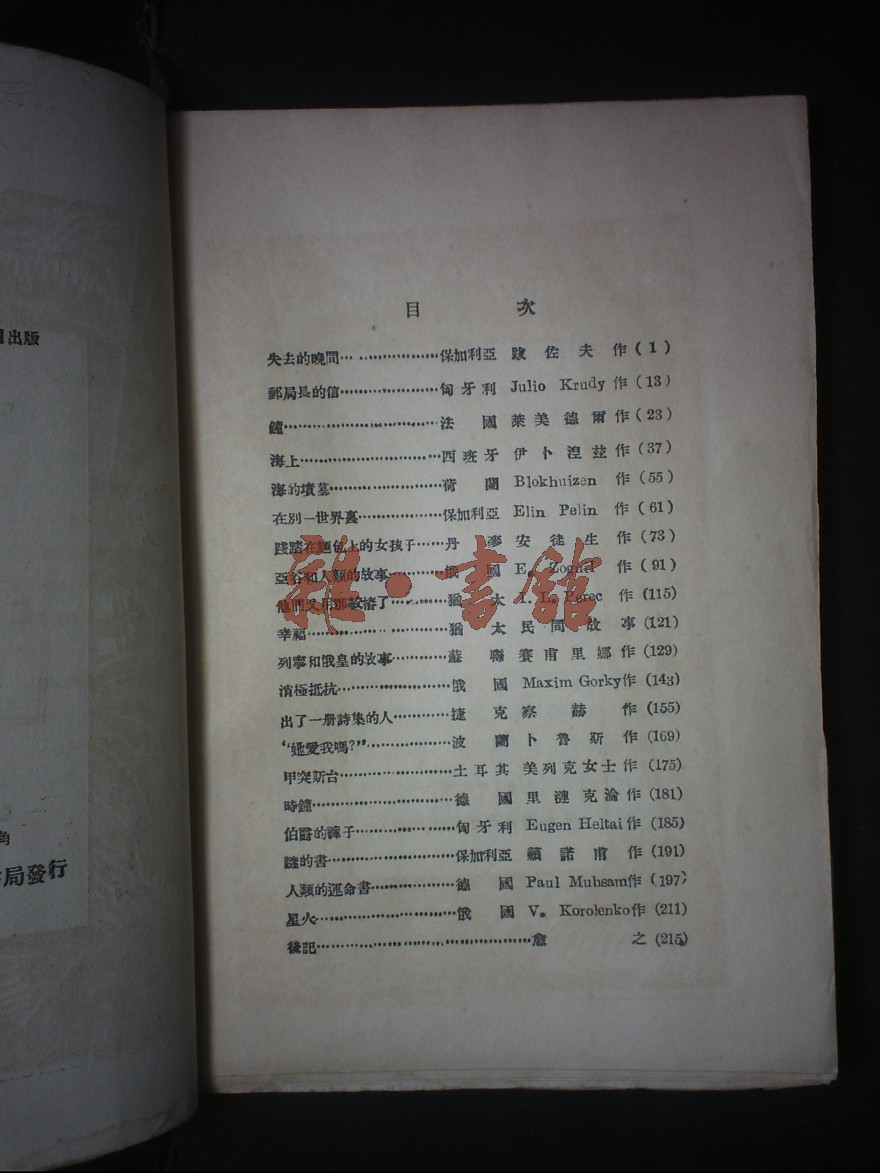 日出版
角
局發行
目 次
失去的晚間⋯⋯⋯⋯⋯⋯⋯保加利亞 跋佐夫 作(1)
郵局長的信⋯⋯⋯⋯⋯⋯⋯匈牙利 Julio Krudy 作(13)
鐘⋯⋯⋯⋯⋯⋯⋯法國 萊美德爾 作(23)
海上⋯⋯⋯⋯⋯⋯⋯西班牙 伊卜湼玆 作(37)
海的墳墓⋯⋯⋯⋯⋯⋯⋯荷蘭 Blokhuizen 作(55)
在別一世界裏⋯⋯⋯⋯⋯⋯⋯保加利亞 Elin Pelin 作(61)
踐踏在麵包上的女孩子⋯⋯丹麥 安徒生 作(73)
亞谷和人類的故事⋯⋯⋯⋯俄國 E. 作(91)
他們又用那敎濬了⋯⋯⋯⋯猶太 I. L. Perec 作(115)
幸福⋯⋯⋯⋯⋯⋯⋯猶太 民間故事(121)
列寧和俄皇的故事⋯⋯⋯⋯蘇聯 賽甫里娜 作(129)
消極抵抗⋯⋯⋯⋯⋯⋯⋯俄國 Maxim Gorky作(143)
出了一册詩集的人⋯⋯⋯⋯捷克 察赫 作(155)
“她愛我嗎?”⋯⋯⋯⋯⋯⋯⋯波蘭 卜魯斯 作(169)
甲突斯台⋯⋯⋯⋯⋯⋯⋯土耳其 美列克女士作(175)
時鐘⋯⋯⋯⋯⋯⋯⋯德國 里漣克淪作(181)
伯爵的褲子⋯⋯⋯⋯⋯⋯⋯匈牙利 Eugen Heltai作(185)
謎的書⋯⋯⋯⋯⋯⋯⋯保加利亞 籟諾甫 作(191)
人類的運命書⋯⋯⋯⋯⋯⋯⋯德國 Paul Muhsam作(197)
星火⋯⋯⋯⋯⋯⋯⋯俄國 V. Korolenko作(211)
後記⋯⋯⋯⋯⋯⋯⋯愈之(215)
雜·書館